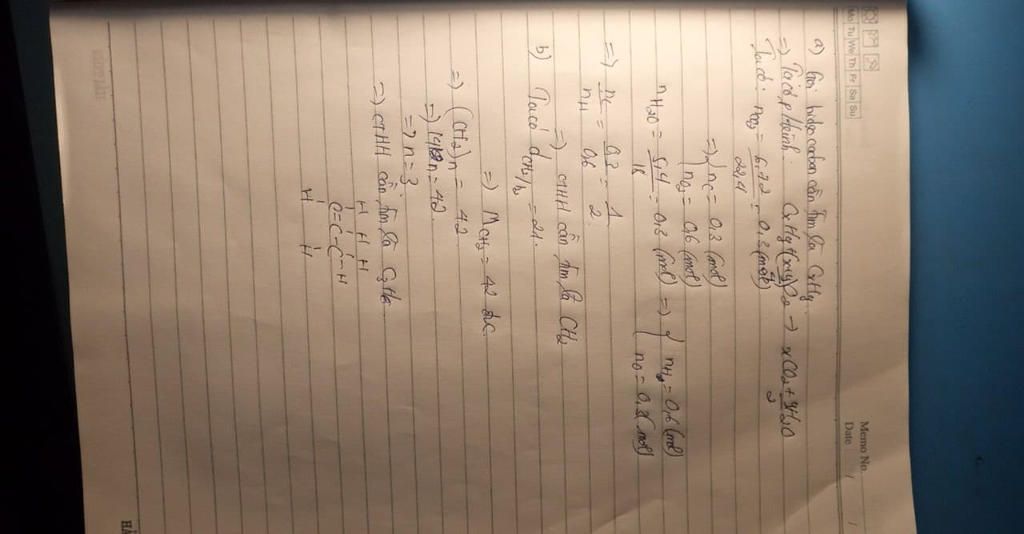 Memo No.
Mo Tu We Th Fr Sa Su
Date
a) Gọi hidrocacbon cần tìm là CxHy
=) Ta có p/trình: CxHy + (x+y/4)O2 → xCO2 + y/2H2O
Ta có: nCO2 = 6,72/22,4 = 0,3 (mol)
=) { nC = 0,3 (mol)
nO = 0,6 (mol)
nH2O = 5,4/18 = 0,3 (mol) =) { nH = 0,6 (mol)
nO = 0,3 (mol)
=) nC/nH = 0,3/0,6 = 1/2
=) CTHH cần tìm là CH2
b) Ta có dCH2/H2 = 21.
=) MCH2 = 42 đvC
=) (CH2)n = 42
=) 14n = 42
=) n = 3
=) CTHH cần tìm là C3H6
H H H
C=C-C-H
H H